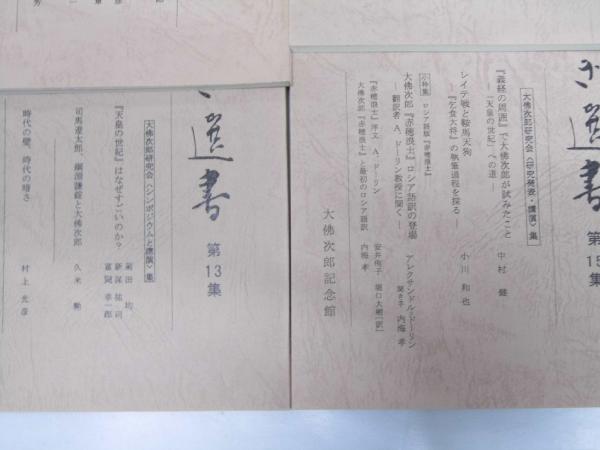 選書
第15集
大佛次郎研究会〈研究発表・講演〉集
『義経の周囲』で大佛次郎が試みたこと
―『天皇の世紀』への道―
中村 健
レイテ戦と鞍馬天狗
―『乞食大将』の執筆過程を探る―
小川 和也
小特集 ロシア語版『赤穂浪士』
大佛次郎『赤穂浪士』ロシア語訳の登場
―翻訳者 A、ドーリン教授に聞く―
アレクサンドル・ドーリン
聞き手 内海 孝
『赤穂浪士』序文 A、ドーリン
安井侑子 堀口大樹[訳]
大佛次郎『赤穂浪士』と最初のロシア語訳
内海 孝
大佛次郎記念館
選書
第13集
大佛次郎研究会〈シンポジウムと講演〉集
『天皇の世紀』はなぜすごいのか?
菊田 均
新保 祐司
富岡 幸一郎
司馬遼太郎、綱淵謙錠と大佛次郎
久米 勲
時代の壁、時代の暗さ
村上 光彦